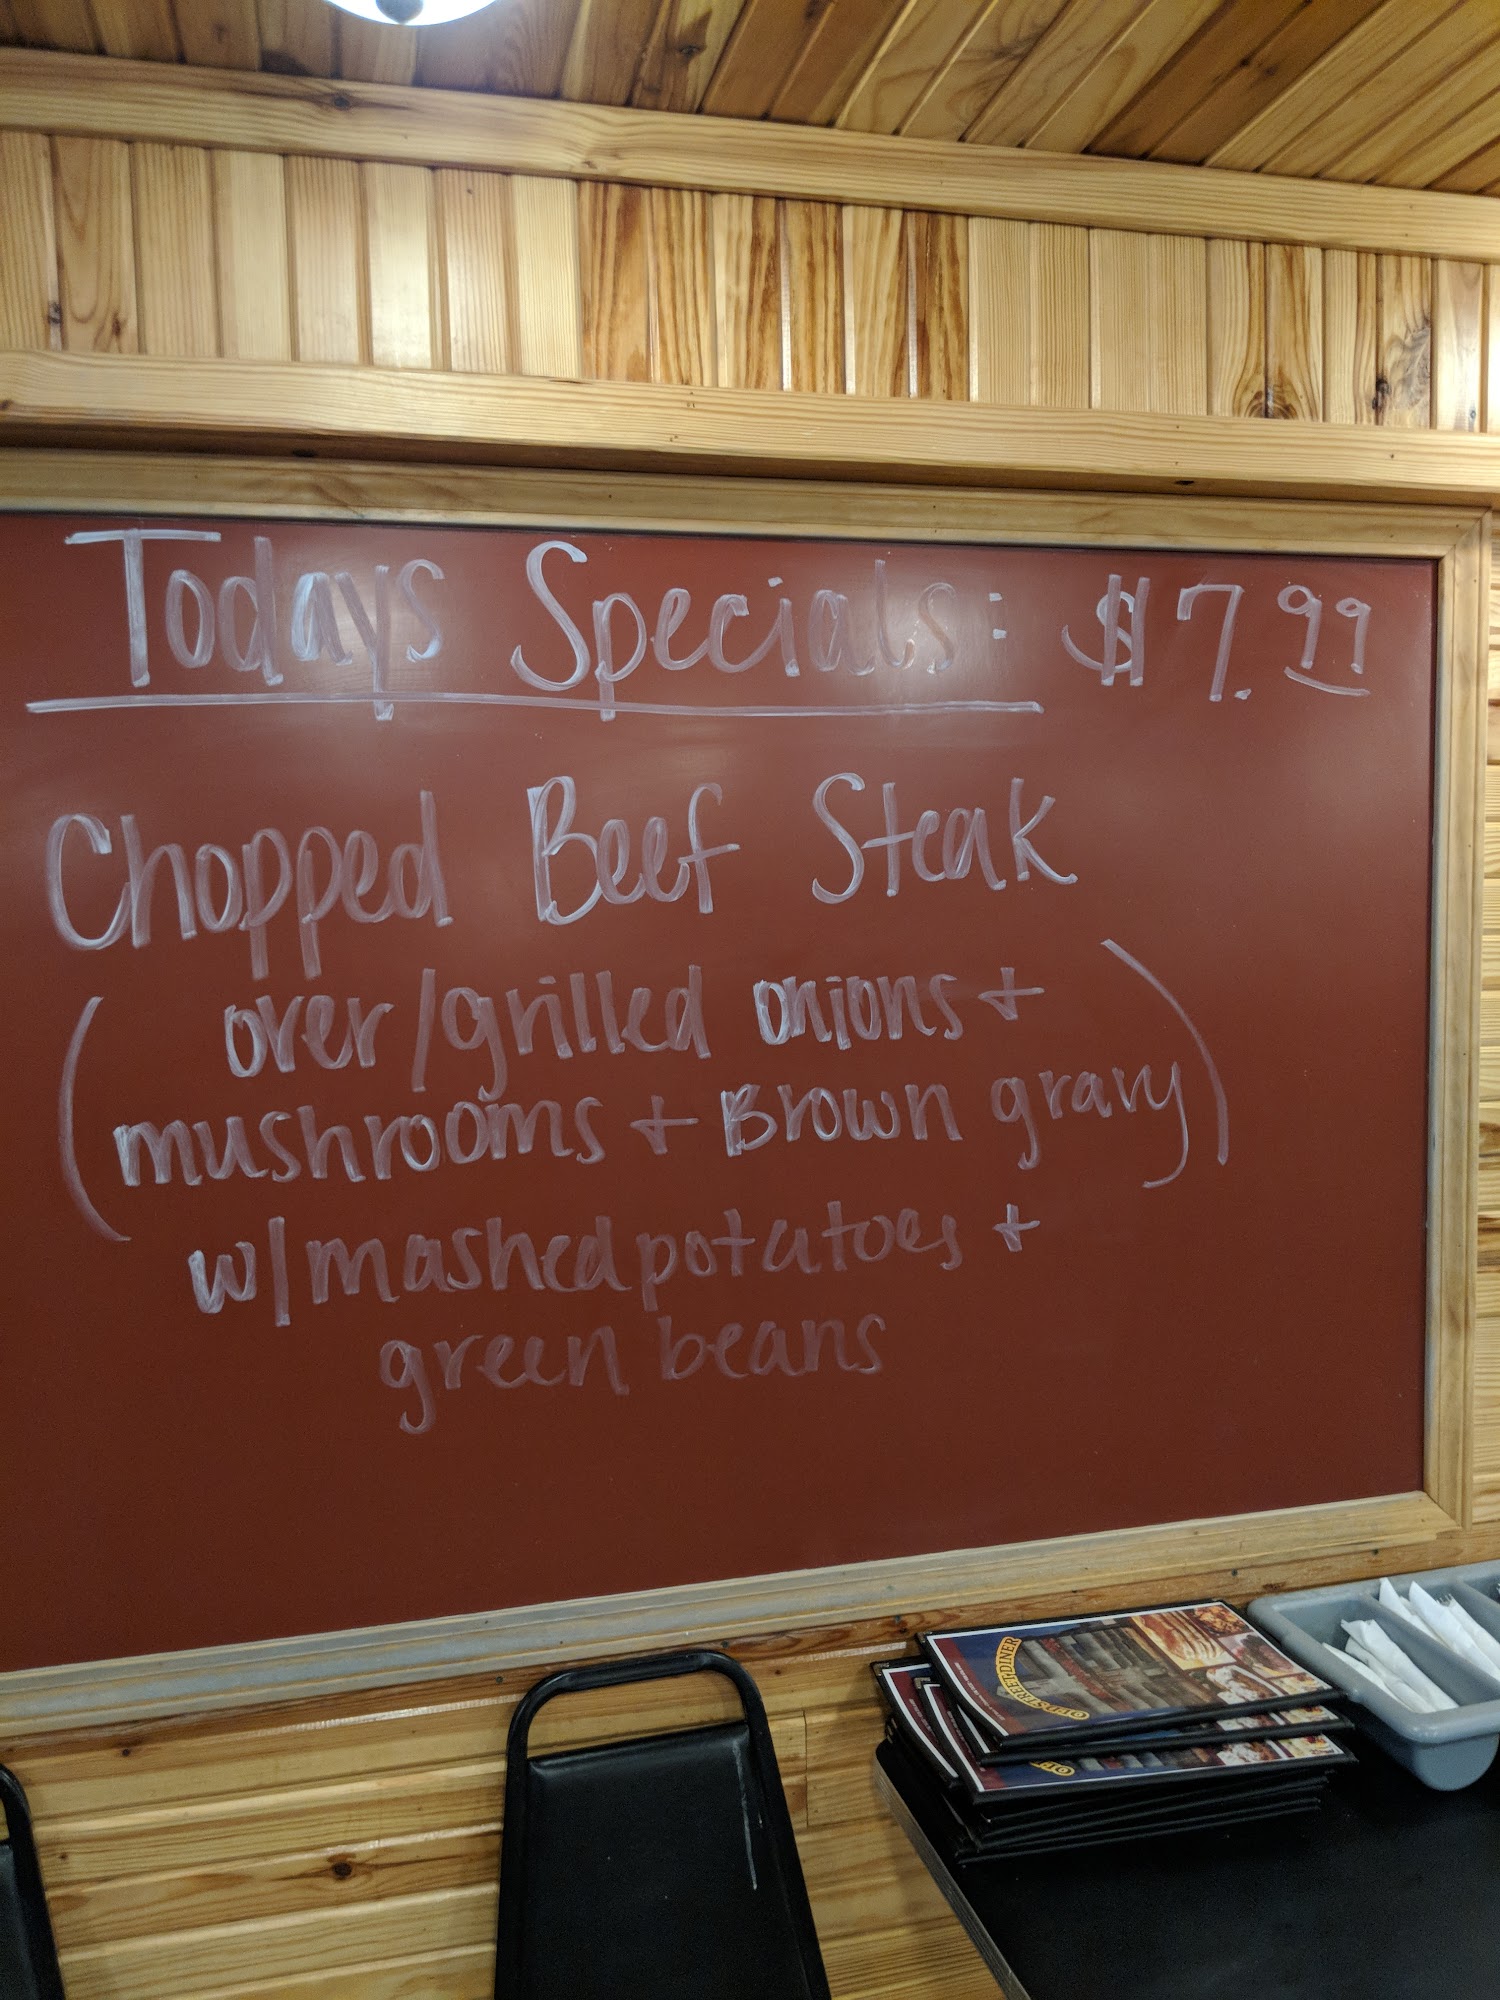 Todays Specials: $7.99
Chopped Beef Steak
(over/grilled onions +
mushrooms + Brown gravy)
w/mashed potatoes +
green beans
OFF STREET DINER